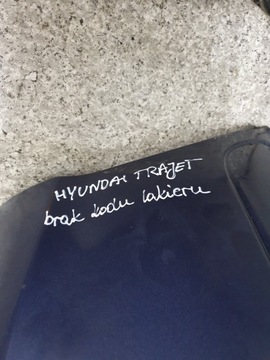 HYUNDAI TRAJET
brak kodu lakieru